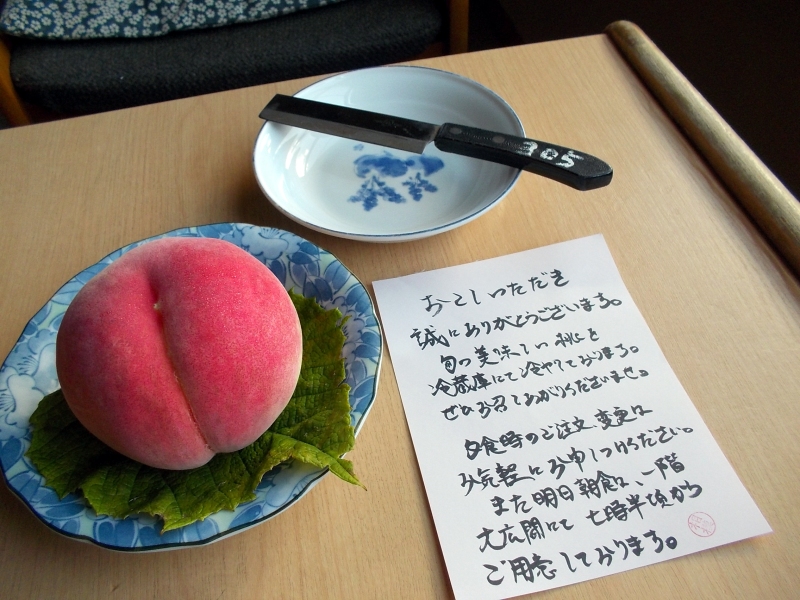 305
おこしいただき
誠にありがとうございます。
旬の美味しい桃を
冷蔵庫にて冷やしております。
ぜひお召しあがりくださいませ。
夕食時のご注文、変更は
お気軽にお申しつけください。
また明日朝食は、一階
大広間にて七時半頃から
ご用意しております。